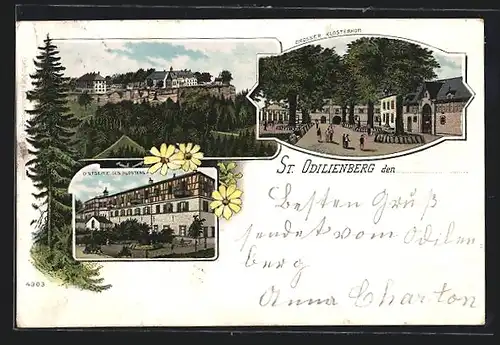 GROSSER KLOSTERHOF
OSTSEITE DES KLOSTERS
ST. ODILIENBERG den
Besten Gruß
sendet vom Odilien-
berg
Anna Charton
4903